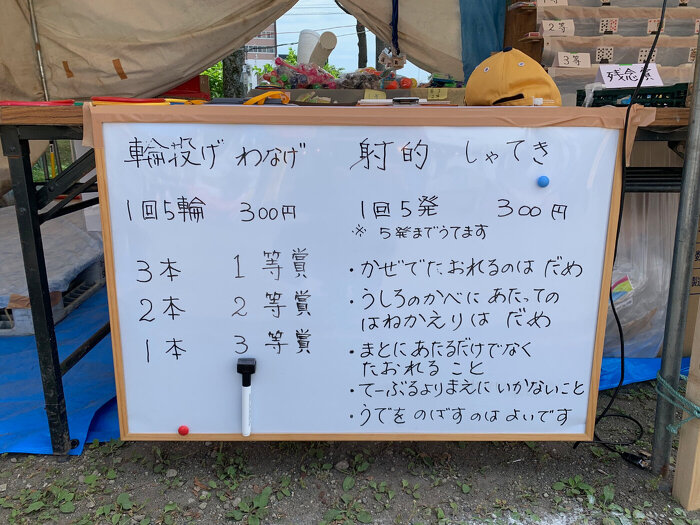 輪投げ わなげ
1回5輪 300円
3本 1等賞
2本 2等賞
1本 3等賞
射的 しゃてき
1回5発 300円
※ 5発までうてます
・かぜでたおれるのは だめ
・うしろのかべに あたっての
はねかえりは だめ
・まとにあたるだけでなく
たおれること
・てーぶるよりまえに いかないこと
・うでを のばすのは よいです
2等
3等
残念賞